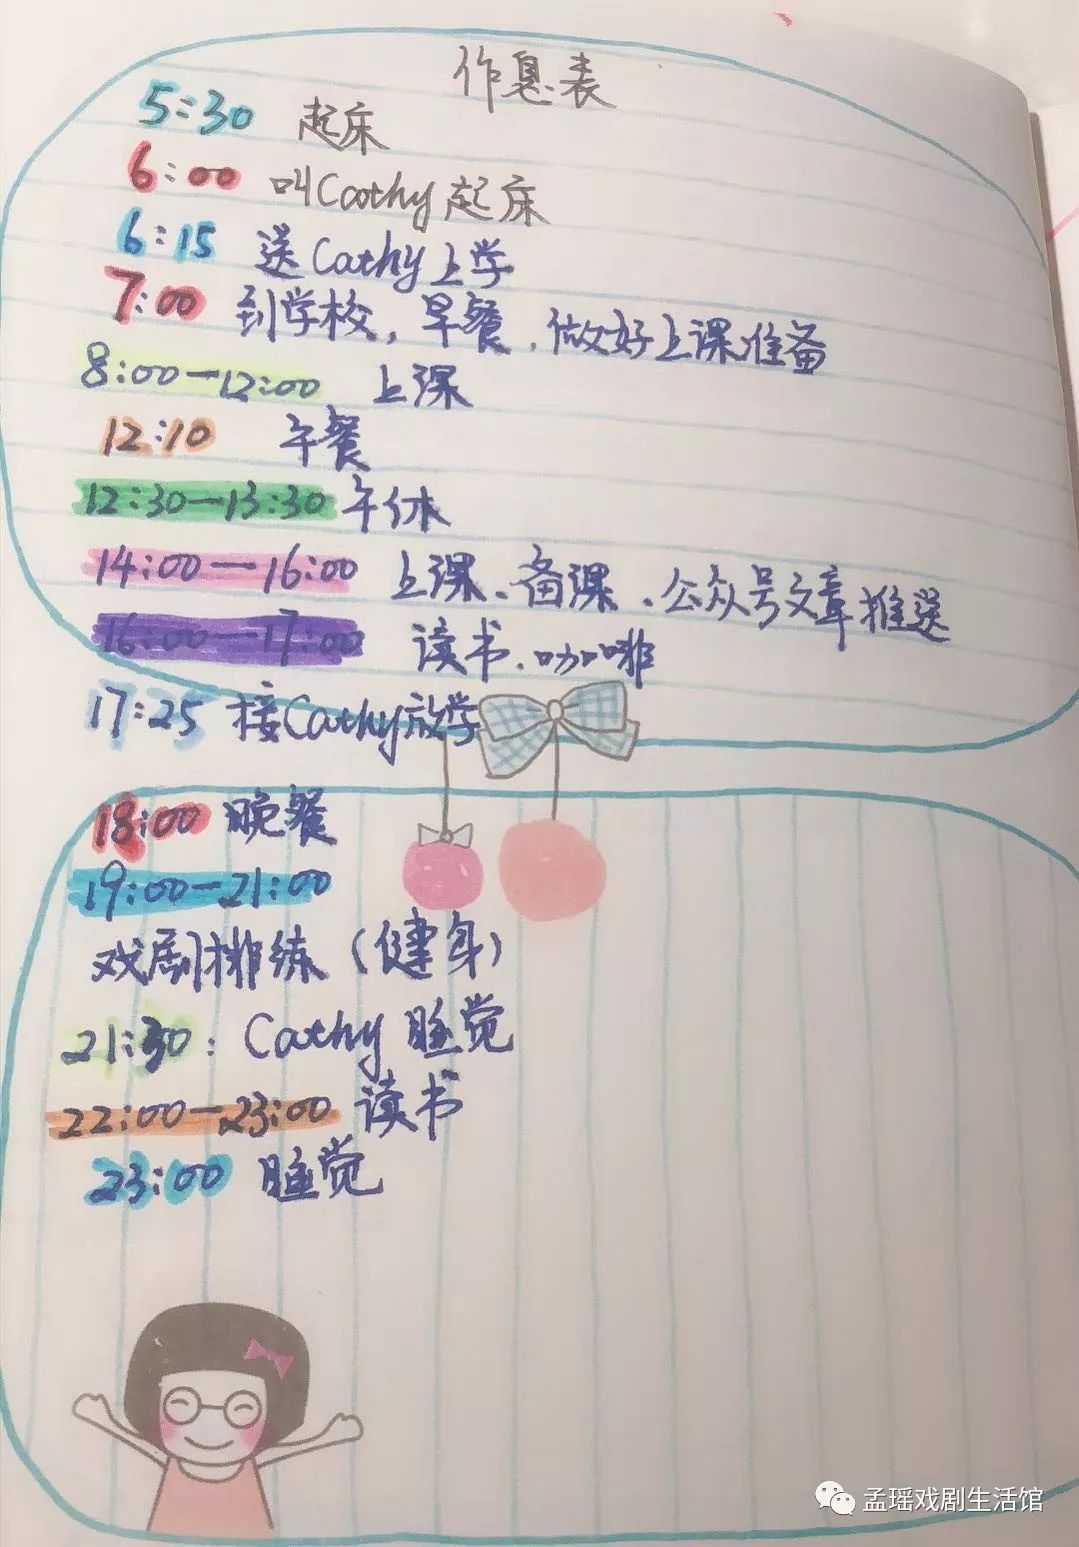 作息表
5:30 起床
6:00 叫Cathy起床
6:15 送Cathy上学
7:00 到学校,早餐,做好上课准备
8:00—12:00 上课
12:10 午餐
12:30—13:30 午休
14:00—16:00 上课、备课、公众号文章推送
16:00—17:00 读书、咖啡
17:25 接Cathy放学
18:00 晚餐
19:00—21:00
戏剧排练(健身)
21:30: Cathy 睡觉
22:00—23:00 读书
23:00 睡觉
孟瑶戏剧生活馆